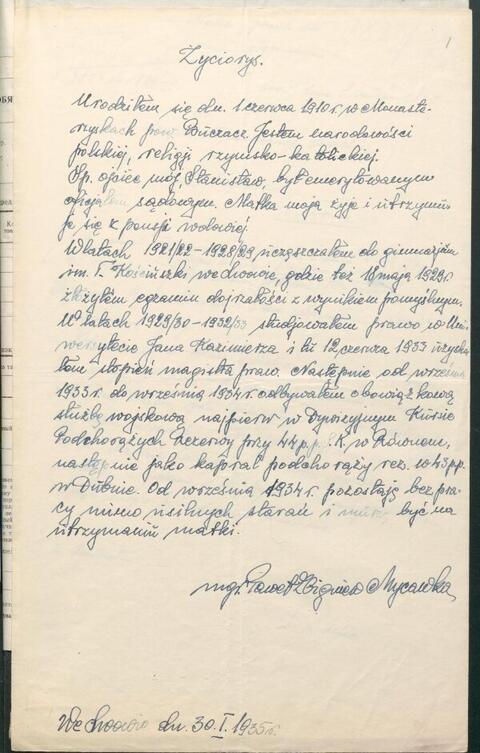 1
Życiorys.
Urodziłem się dn. 1 czerwca 1910 r. w Monaste-
rzyskach pow. Buczacz. Jestem narodowości
polskiej, religji rzymsko-katolickiej.
Śp. ojciec mój, Stanisław, był emerytowanym
oficjałem sądowym. Matka moja żyje i utrzymu-
je się z pensji wdowiej.
W latach 1921/22 – 1928/29 uczęszczałem do gimnazjum
im. T. Kościuszki we Lwowie, gdzie też 18 maja 1929 r.
złożyłem egzamin dojrzałości z wynikiem pomyślnym.
W latach 1929/30 – 1932/33 studjowałem prawo w Uni-
wersytecie Jana Kazimierza i tu 12 czerwca 1933 uzyska-
łem stopień magistra praw. Następnie od września
1933 r. do września 1934 r. odbywałem obowiązkową
służbę wojskową najpierw w Dywizyjnym Kursie
Podchorążych Rezerwy przy 44 p.p. K. w Równem,
następnie jako kapral podchorąży rez. w 43 p.p.
w Dubnie. Od września 1934 r. pozostaję bez pra-
cy mimo usilnych starań i muszę być na
utrzymaniu matki.
mgr. Paweł Zbigniew Mycawka
We Lwowie dn. 30. I. 1935 r.